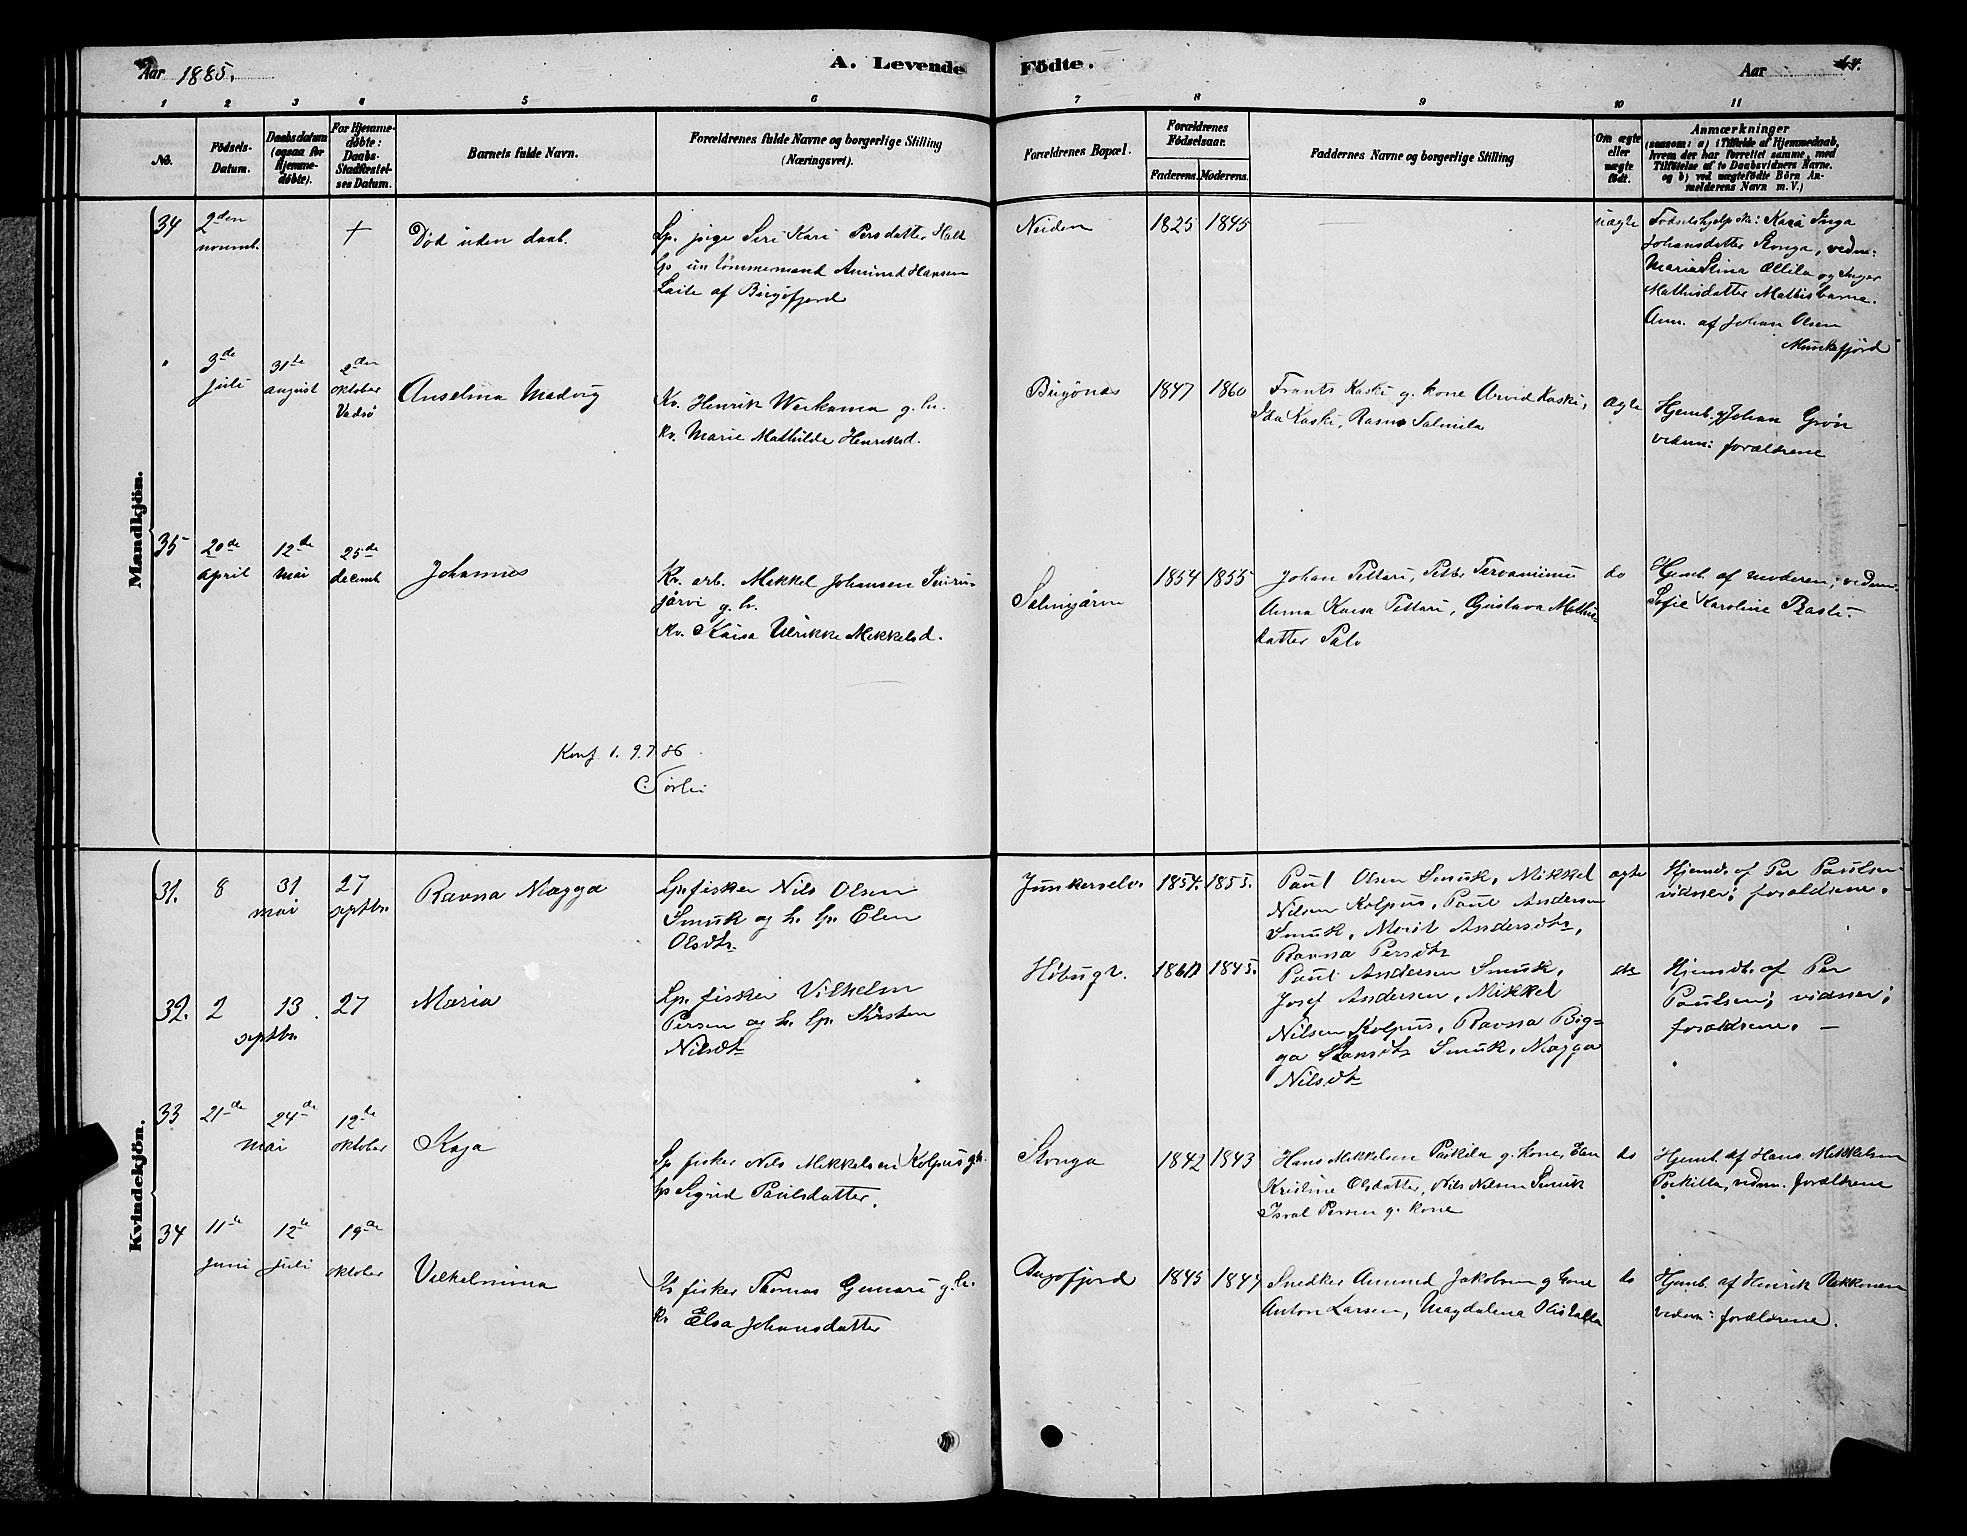 Aar 1885.
A. Levende
Födte.
Aar
1 2 3 4 5 6
7 8 9 10 11
No.
Födsels-
Datum.
Daabsdatum
(ogsaa for
Hjemme-
døbte).
For Hjemme-
døbte:
Daabs-
Stadfæstel-
ses Datum.
Barnets fulde Navn.
Forældrenes fulde Navne og borgerlige Stilling
(Næringsvei).
Forældrenes Bopæl.
Forældrenes
Födselsaar.
Faderens. Moderens.
Faddernes Navne og borgerlige Stilling
Om ægte
eller
uægte
födt.
Anmærkninger
(saasom: a) i Tilfælde af Hjemmedaab,
hvem der har forrettet samme, med
Tilföielse af to Daabsvidners Navne,
og b) ved uægtefödte Börn An-
melderens Navn m. V.)
Mandkjön.
34
2den
novemb.
+
Död uden daab.
Lp. pige Siri Kari Persdatter
Lp un tömmermand Amund Hansen
Laite af Bugöfjord
Neiden
1825 1845
uægte
Födselshjelpske: Karä Inga
Johansdatter Stonga, vedm:
Maria Stina Ellila og Inger
Mathisdatter Mathisbarne.
Anm. af Johan Olsen
Munkefjord
"
3de
juli
31te
august
2den
oktober
Vadsö
Anselina Medvig
Kv. Henrik Warkama g. hr.
kv. Marie Mathilde Henriksd.
Bugönæs
1847 1860
Frants Kaski g. kone Arvid Kaski,
Ida Kaski, Rasmus Salmila
ægte
Hjemb. af Johan Grön
vidnm: forældrene
35
20de
april
12de
mai
25de
decemb
Johannes
Kv. arb. Mikkel Johansen
järvi g. hr.
kv. Kaisa Ulrikke Mikkelsd.
Salmijärvi
1854 1855
Johan Pettari,
Anna Kaisa Pettari, Gustava Mathis
datter Palo
do
Hjemb. af moderen, vidnm.
Sofie Karoline
Konf. 1. 9.7.86.
Kvindekjön.
31.
8
31
mai
27
septbr.
Ravna Magga
Lp. fisker Nils Olsen
Smuk og h. lp. Elen
Olsdtr.
Junkerselv.
1854. 1855.
Paul Olsen Smuk, Mikkel
Nilsen Kolpus, Paul Andersen
Smuk, Marit Andersdtr,
Ravna Persdtr
ægte
Hjemd. af Per Paulsen
vidner: forældrene.
32.
2
13
septbr.
27
Maria
Lp. fisker Vilhelm
Persen og h. lp. Kirsten
Nilsdtr
Höbugt.
1845.
Paul Andersen Smuk,
Josef Andersen, Mikkel
Nilsen Kolpus, Ravna Big-
ga Hansdtr Smuk, Magga
Nilsdtr
do
Hjemdt. af Per
Paulsen; vidner;
forældrene.
33
21de
24de
mai
12te
oktober
Kaja
Lp fisker Nils Mikkelsen Kolpus g. h.
lp Sigrid Paulsdatter.
Stonga
1842 1843
Hans Mikkelsen g. kone, Elen
Kristine Olsdatter, Nils Nilsen Smuk
Isral Persen g. kone
do
Hjemb. af Hans Mikkelsen
vidnm. forældrene
34
11te
juni
12te
juli
19de
oktober
Vilhelmina
Kv fisker Thomas g. hr.
kv Elsa Johansdatter
Bugöfjord
1845 1847
Snedker Amund Jakobsen g kone
Anton Larsen, Magdalena
do
Hjemb. af Hinrik Pekkonen
vidnm: forældrene.